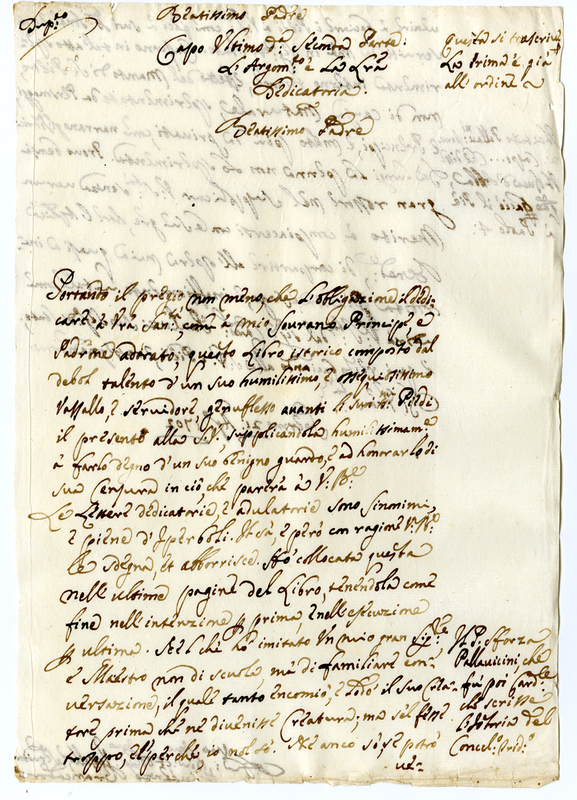 Dup.to
Beatissimo Padre
Capo Ultimo d.a Seconda Parte.
L'Argom.to è La Lra
Dedicatoria.
Questa si trascrive
La prima è già
all'ordine
Beatissimo Padre
Portando il pregio non meno, che l'obligazione il dedi-
care à Vra San.tà come à mio Sourano Principe, e
Padrone adorato, questo Libro istorico composto dal
debol talento d'un suo humilissimo, e ossequiosissimo
Vassallo, e servidore, genuflesso avanti li suoi SS.mi Piedi
il presento alla S.V., supplicandola humilissimam.te
à farlo degno d'un suo benigno guardo, e ad honorarlo di
sua Censura in ciò, che parerà à V. B.e
Le Lettere dedicatorie, e adulatorie sono sinonime,
e piene d'Iperboli. Et sà, e però con ragione V. B.e
le sdegna, et abborrisce. Hò collocata questa
nell'ultime pagine del Libro, tenendola come
fine nell'intenzione p prima, e nell'esecuzione
p ultima. Nel che hò imitato un mio gran Sig.re
e Maestro non di scuola, mà di familiare con-
versazione, il quale tanto encomiò, e lodò il suo Crea-
tore prima che ne divenisse Creatura; ma s'el fesse
troppo, e'l perche, io nol sò. Ne anco sò, se potrò
ve-
Il P. Sforza
Pallavicini, che
fù poi Card.le
che scrisse
l'istoria del
Concil.o Trid.o